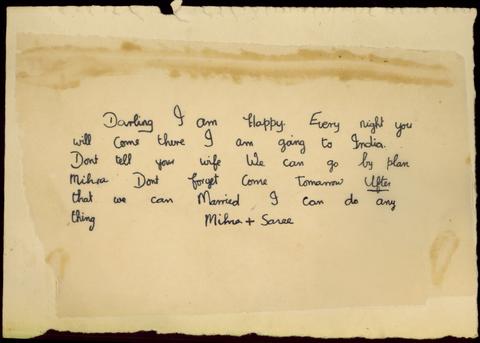 Darling I am Happy. Every night you
will come there I am going to India.
Dont tell your wife We can go by plan
Mihra Dont forget Come Tomarrow Ufter
that we can Married I can do any
thing Mihra + Saree